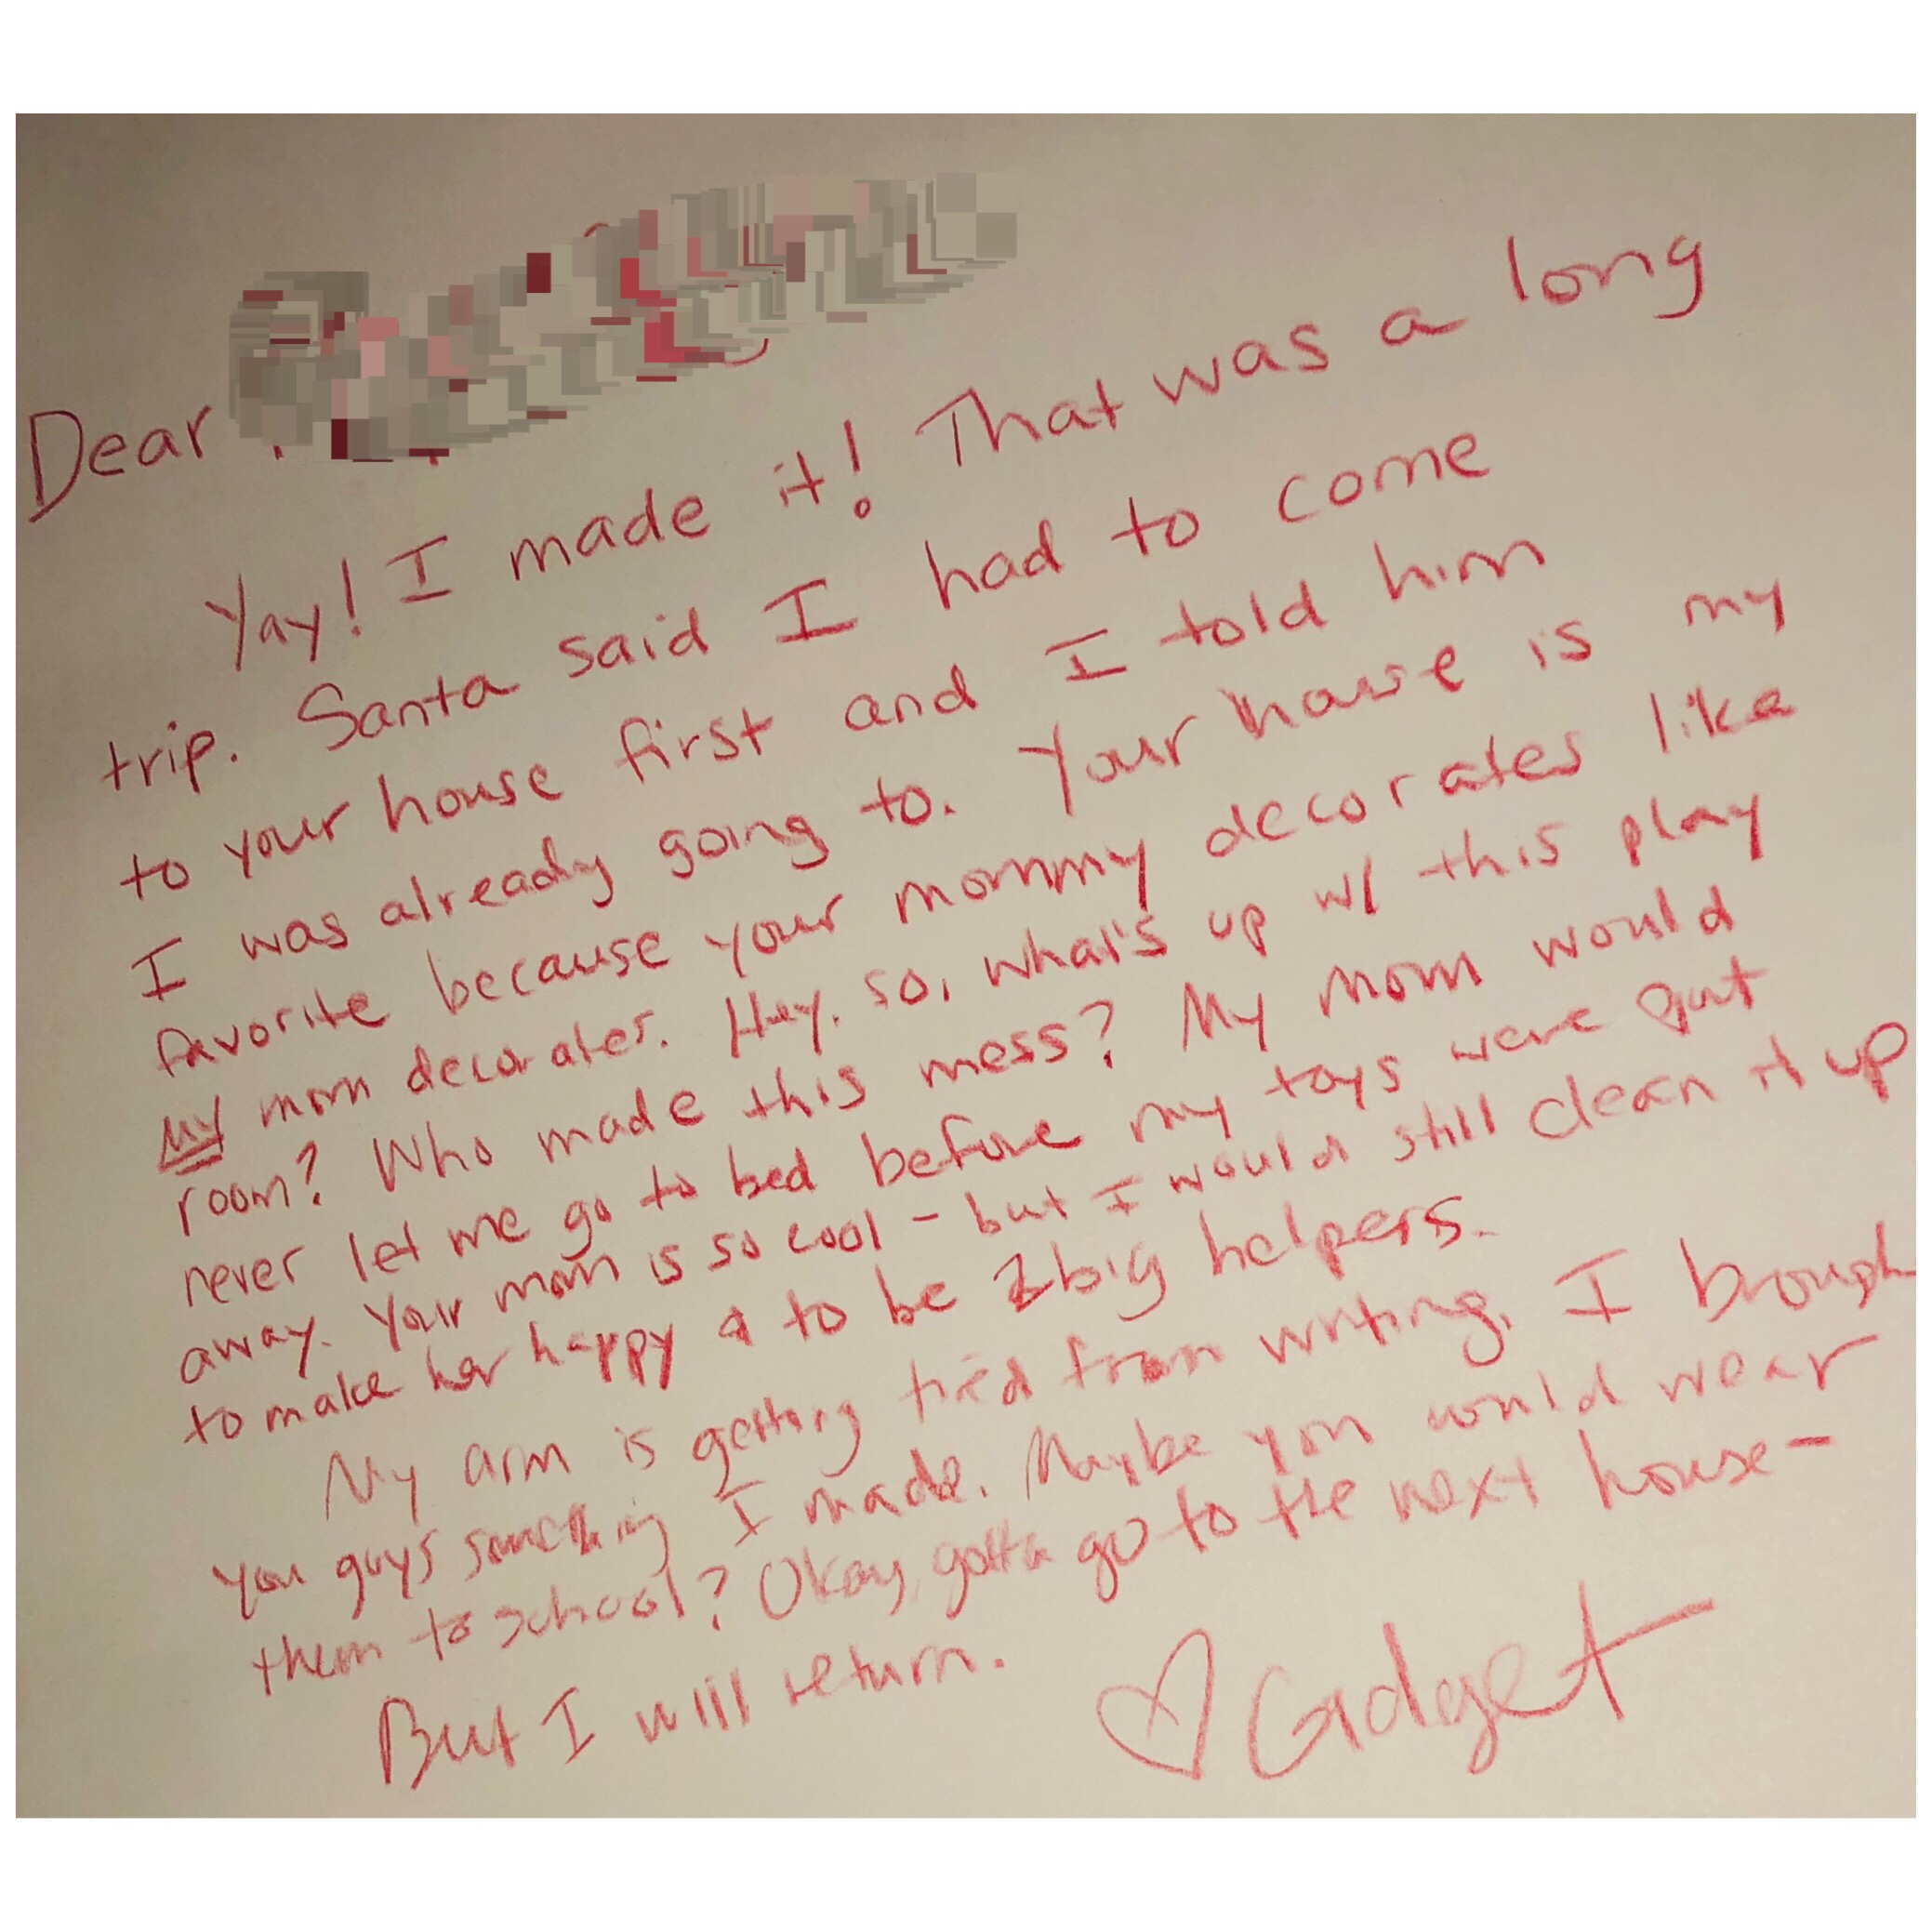 Dear
Yay! I made it! That was a long
trip. Santa said I had to come
to your house first and I told him
I was already going to. Your house is my
favorite because your mommy decorates like
My mom decorates. Hey, so, what's up w/ this play
room? Who made this mess? My mom would
never let me go to bed before my toys were put
away. Your mom is so cool - but I would still clean it up
to make her happy & to be 2 big helpers.
My arm is getting tired from writing. I brough
you guys something I made. Maybe you would wear
them to school? Okay, gotta go to the next house-
But I will return.
♡ Gadget